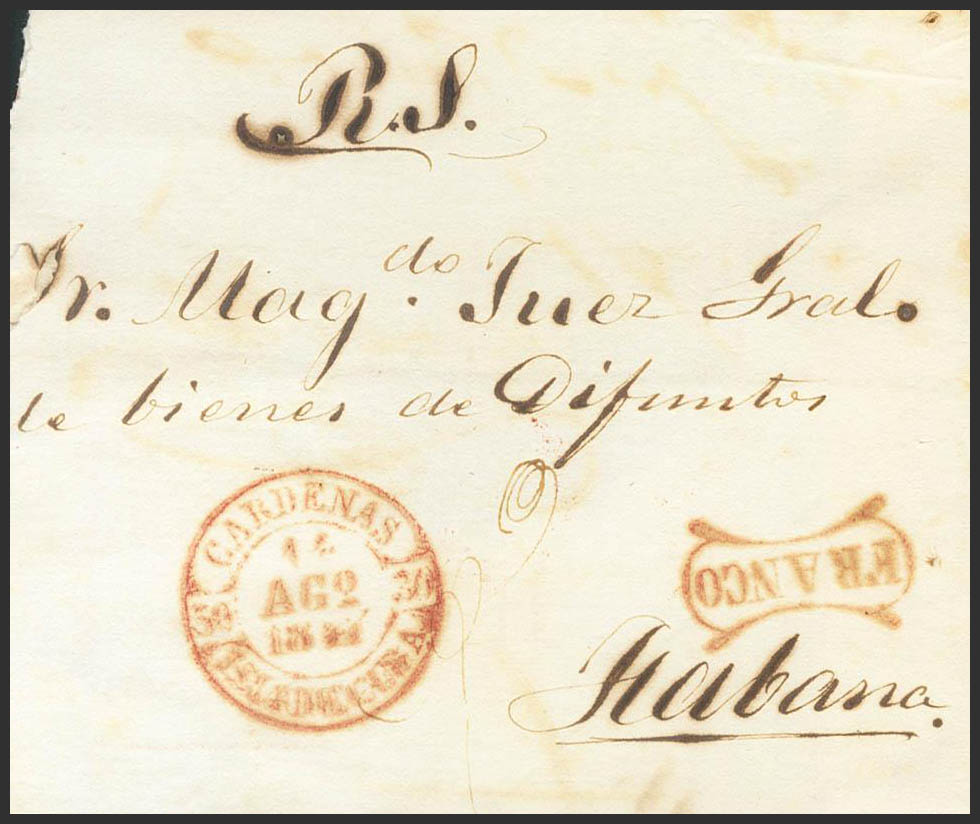 R. S.
Sr. Mag.do Juez Gral.
de bienes de Difuntos
CARDENAS
AGO
ISLA DE CUBA
FRANCO
Habana.